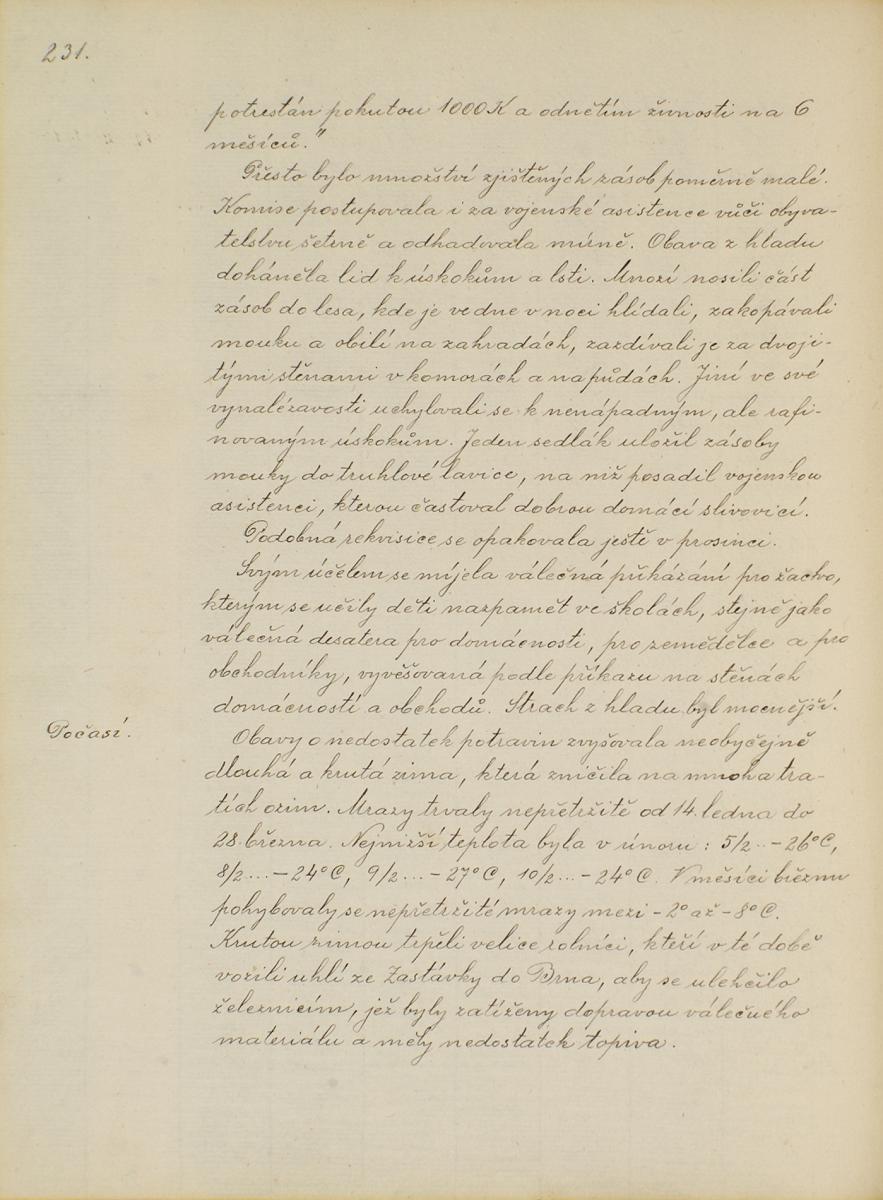 231.
potrestán pokutou 1000 K a odnětím živnosti na 6
měsíců."
Přesto bylo množství zjištěných zásob poměrně malé.
Komise postupovala i za vojenské asistence vůči obyva-
telstvu šetrně a odhadovala mírně. Obava z hladu
doháněla lid k úskokům a lsti. Mnozí nosili část
zásob do lesa, kde je ve dne v noci hlídali, zakopávali
mouku a obilí na zahradách, zazdívali je za dvoji-
tými stěnami v komorách a na půdách. Jiní ve své
vynalézavosti uchylovali se k nenápadným, ale rafi-
novaným úskokům. Jeden sedlák uložil zásoby
mouky do truhlové lavice, na niž posadil vojenskou
asistenci, kterou častoval dobrou domácí slivovicí.
Podobná rekvisice se opakovala ještě v prosinci.
Svým účelem se míjela válečná přikázání pro žactvo,
kterým se učily děti nazpamět ve školách, stejně jako
válečná desatera pro domácnosti, pro zemědělce a pro
obchodníky, vyvěšovaná podle příkazu na stěnách
domácností a obchodů. Strach z hladu byl mocnější.
Počasí.
Obavy o nedostatek potravin zvyšovala neobyčejně
dlouhá a krutá zima, která zničila na mnoha tra-
tích ozim. Mrazy trvaly nepřetržitě od 14. ledna do
28. března. Nejnižší teplota byla v únoru : 5/2 .. - 26°C,
8/2 ... - 24°C, 9/2 ... - 27°C, 10/2 ... - 24°C. V měsíci březnu
pohybovaly se nepřetržité mrazy mezi - 2° až - 8°C.
Krutou zimou trpěli velice rolníci, kteří v té době
vozili uhlí ze Zastávky do Brna, aby se ulehčilo
železnicím, jež byly zatíženy dopravou válečného
materiálu a měly nedostatek topiva.